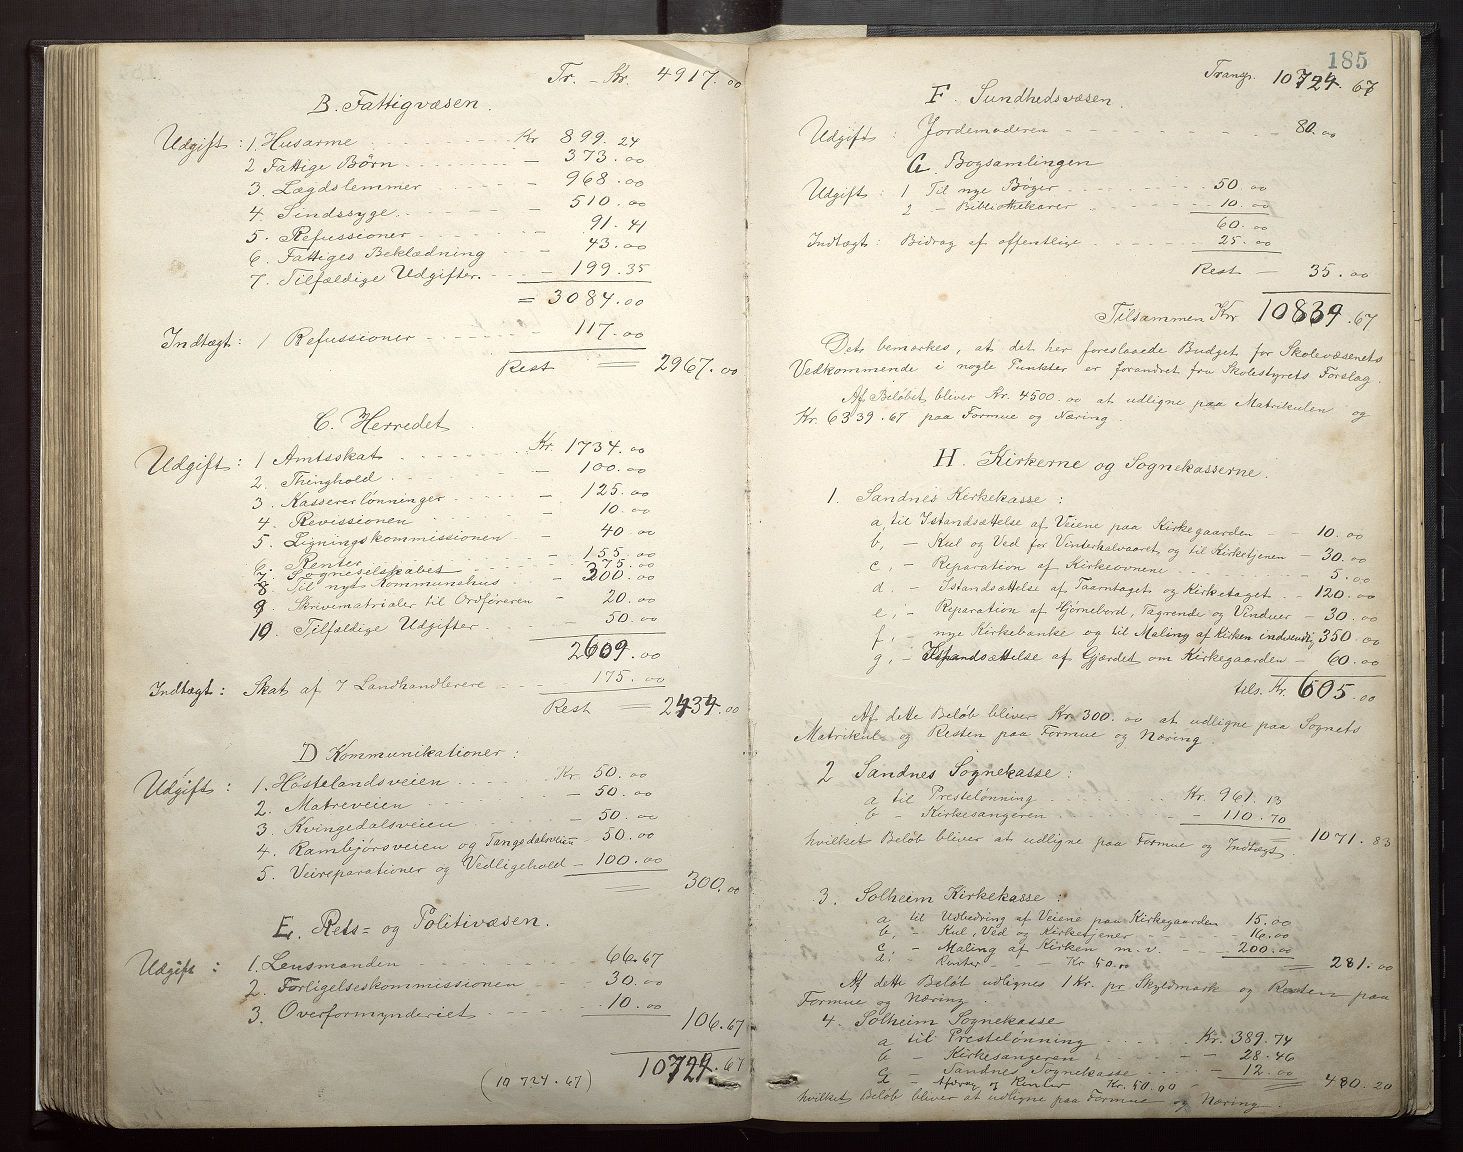 Tr. - Kr. 4917.00
B. Fattigvæsen.
Udgift: 1. Husarme Kr 899.24
2 Fattige Børn - 373.00
3. Lægdslemmer - 968.00
4. Sindssyge - 510.00
5. Refussioner 91.41
6. Fattiges Beklædning - 43.00
7. Tilfældige Udgifter - 199.35
= 3084.00
Indtægt: 1 Refussioner 117.00
Rest = 2967.00
C. Herredet
Udgift: 1 Amtsskat Kr 1734.00
2. Thinghold - 100.00
3. Kassererlønninger - 125.00
4. Revissionen - 10.00
5. Ligningskommissionen - 40.00
6. Renter - 155.00
7. Sogneselskabet 75.00
8 Til nyt Kommunehus 300.00
9. Skrivematrialer til Ordføreren - 20.00
10. Tilfældige Udgifter - 50.00
2609.00
Indtægt: Skat af 7 Landhandlerere - 175.00
Rest = 2434.00
D Kommunikationer:
Udgift: 1. Hostelandsveien Kr. 50.00
2. Matreveien - 50.00
3. Kvingedalsveien - 50.00
4. Rambjørsveien og Tangedalsveien - 50.00
5. Veireparationer og Vedligehold - 100.00
= 300.00
E. Rets= og Politivæsen.
Udgift: 1. Lensmanden 66.67
2. Forligelseskommissionen 30.00
3. Overformynderiet 10.00
106.67
10724.67
(10724.67)
185
Transp. 10724.67
F. Sundhedsvæsen.
Udgift: Jordemoderen - 80.00
G. Bogsamlingen
Udgift: 1 Til nye Bøger 50.00
2 - Bibliothekarer 10.00
60.00
Indtægt: Bidrag af offentlige 25.00
Rest - 35.00
Tilsammen Kr 10839.67
Det bemærkes, at det her foreslaaede Budget for Skolevæsenets
Vedkommende i nogle Punkter er forandret fra Skolestyrets Forslag.
Af Beløbet bliver Kr. 4500.00 at udligne paa Matrikulen og
Kr. 6339.67 paa Formue og Næring.
H. Kirkerne og Sognekasserne.
1. Sandnes Kirkekasse:
a, til Istandsættelse af Veiene paa Kirkegaarden - 10.00
b, - Kul og Ved for Vinterhalvaaret og til Kirketjenen - 30.00
c, - Reparation af Kirkeovnene 5.00
d. - Istandsættelse af Taarntaget og Kirketaget - 120.00
e, - Reparation af Hjørnebord, Tagrende og Vinduer - 30.00
f, - nye Kirkebænke og til Maling af Kirken indvendig 350.00
g, - Istandsættelse af Gjærdet om Kirkegaarden - 60.00
tils. Kr. 605.00
Af dette Beløb bliver Kr. 300.00 at udligne paa Sognets
Matrikul og Resten paa Formue og Næring.
2 Sandnes Sognekasse:
a til Prestelønning Kr. 961.13
b - Kirkesangeren - 110.70
hvilket Beløb bliver at udligne paa Formue og Indtægt. = 1071.83
3. Solheim Kirkekasse:
a til Udbedring af Veiene paa Kirkegaarden 15.00
b, - Kul, Ved og Kirketjener - 16.00
c, - Maling af Kirken m.v. - 200.00
d. - Renter - Kr 50.00 = 281.00
Af dette Beløb udlignes 1 Kr. pr Skyldmark og Resten paa
Formue og Næring.
4. Solheim Sognekasse
a til Prestelønning Kr. 389.74
b - Kirkesangeren - 28.46
c - Sandnes Sognekasse - 12.00
d - Afdrag og Renter Kr. 50.00 = 480.20
hvilket Beløb bliver at udligne paa Formue og Næring.